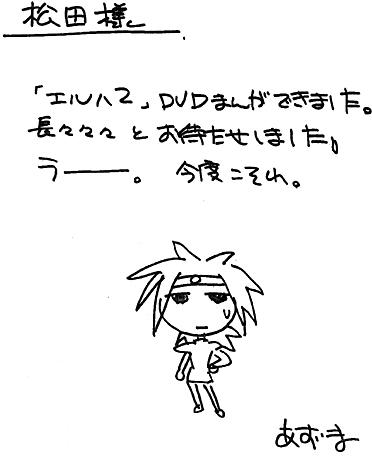 松田様
「エルハマ」DVDまんができました。
長々々々とお待たせしました。
うー。今度こそれ。
あずま